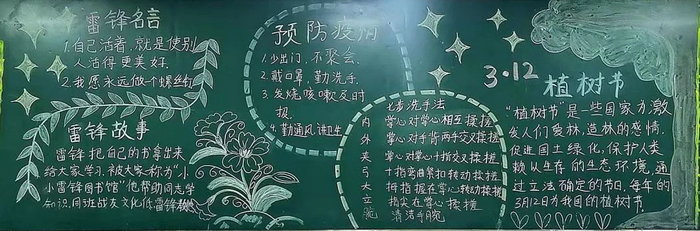 雷锋名言
1.自己活着,就是使别
人活得更美好.
2.我愿永远做个螺丝钉
雷锋故事
雷锋把自己的书拿出来
给大家学习.被大家称为“小
小雷锋图书馆”他帮助同志学
知识.同班战友文化低雷锋教
预防疫
1.少出门,不聚会.
2.戴口罩,勤洗手.
3.发烧咳嗽及时
报.
4.勤通风讲卫生
七步洗手法
内 掌心对掌心相互揉搓
外 掌心对手背两手交叉揉搓
夹 掌心对掌心十指交叉揉搓
弓 十指弯曲紧扣转动揉搓
大 拇指握在掌心转动揉搓
立 指尖在掌心揉搓
腕 清洁手腕
3·12 植树节
“植树节”是一些国家为激
发人们爱林,造林的感情.
促进国土绿化,保护人类
赖以生存的生态环境,通
过立法确定的节日,每年的
3月12日为我国的植树节.